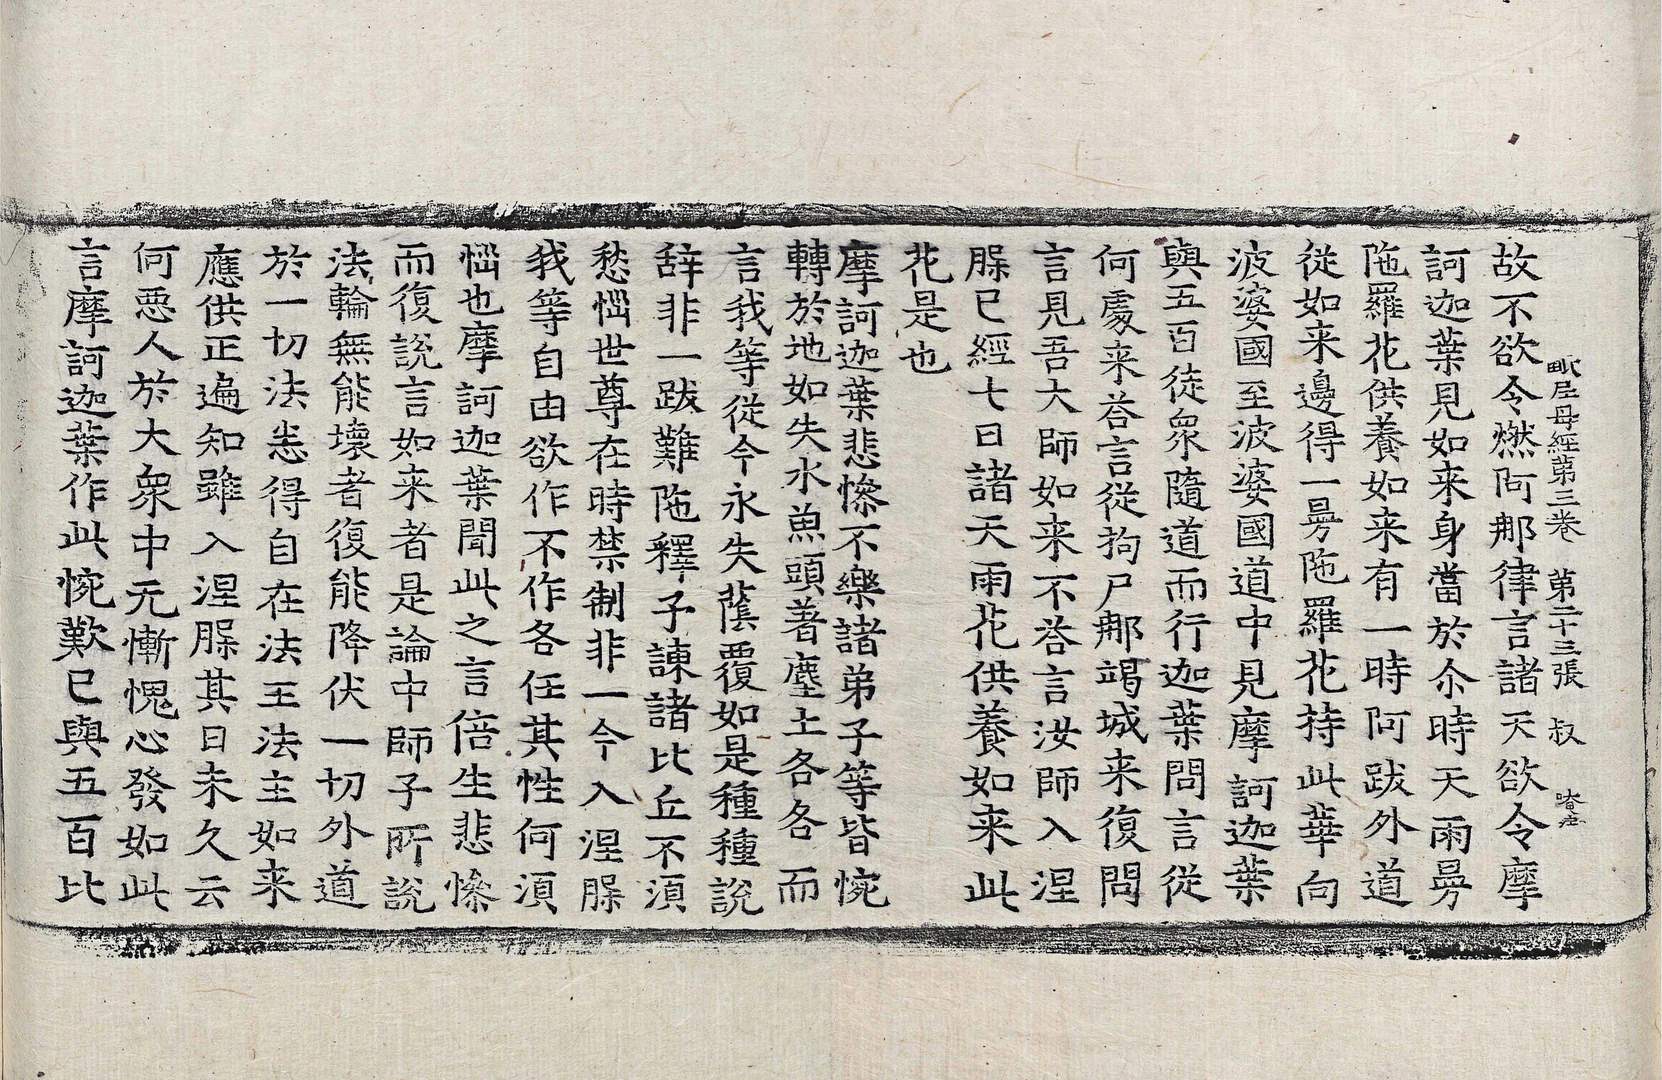 毗尼母經第三卷 第二十三張 叔
故不欲令燃阿那律言諸天欲令摩
訶迦葉見如来身當於尒時天雨曼
陁羅花供養如来有一時阿跋外道
從如来邊得一曼陁羅花持此華向
波婆國至波婆國道中見摩訶迦葉
與五百徒衆隨道而行迦葉問言從
何處来荅言從拘尸那竭城来復問
言見吾大師如来不荅言汝師入涅
槃已經七日諸天雨花供養如来此
花是也
摩訶迦葉悲慘不樂諸弟子等皆惋
轉於地如失水魚頭著塵土各各而
言我等從今永失蔭覆如是種種說
辞非一跋難陁釋子諫諸比丘不須
愁惱世尊在時禁制非一今入涅槃
我等自由欲作不作各任其性何須
惱也摩訶迦葉聞此之言倍生悲慘
而復說言如来者是論中師子所說
法輪無能壞者復能降伏一切外道
於一切法悉得自在法王法主如来
應供正遍知雖入涅槃其日未久云
何惡人於大衆中无慚愧心發如此
言摩訶迦葉作此惋歎已與五百比